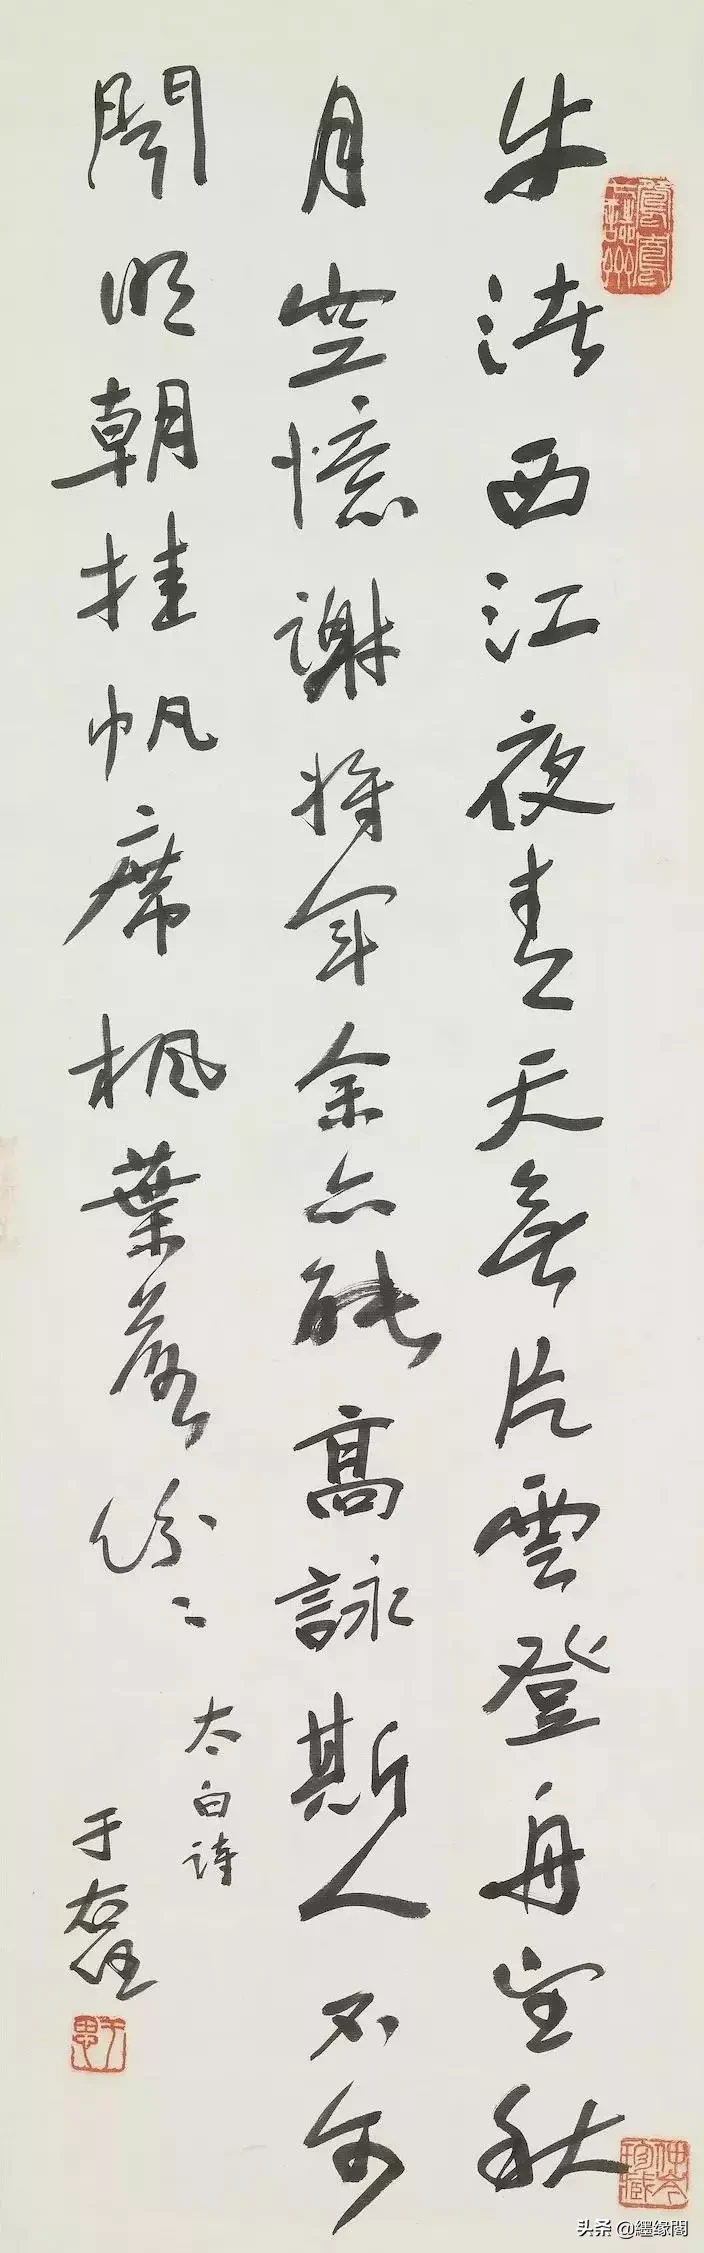 牛渚西江夜青天無片雲登舟望秋
月空憶謝將軍余亦能高詠斯人不可
聞明朝挂帆席楓葉落紛々
太白詩
于右任
头条